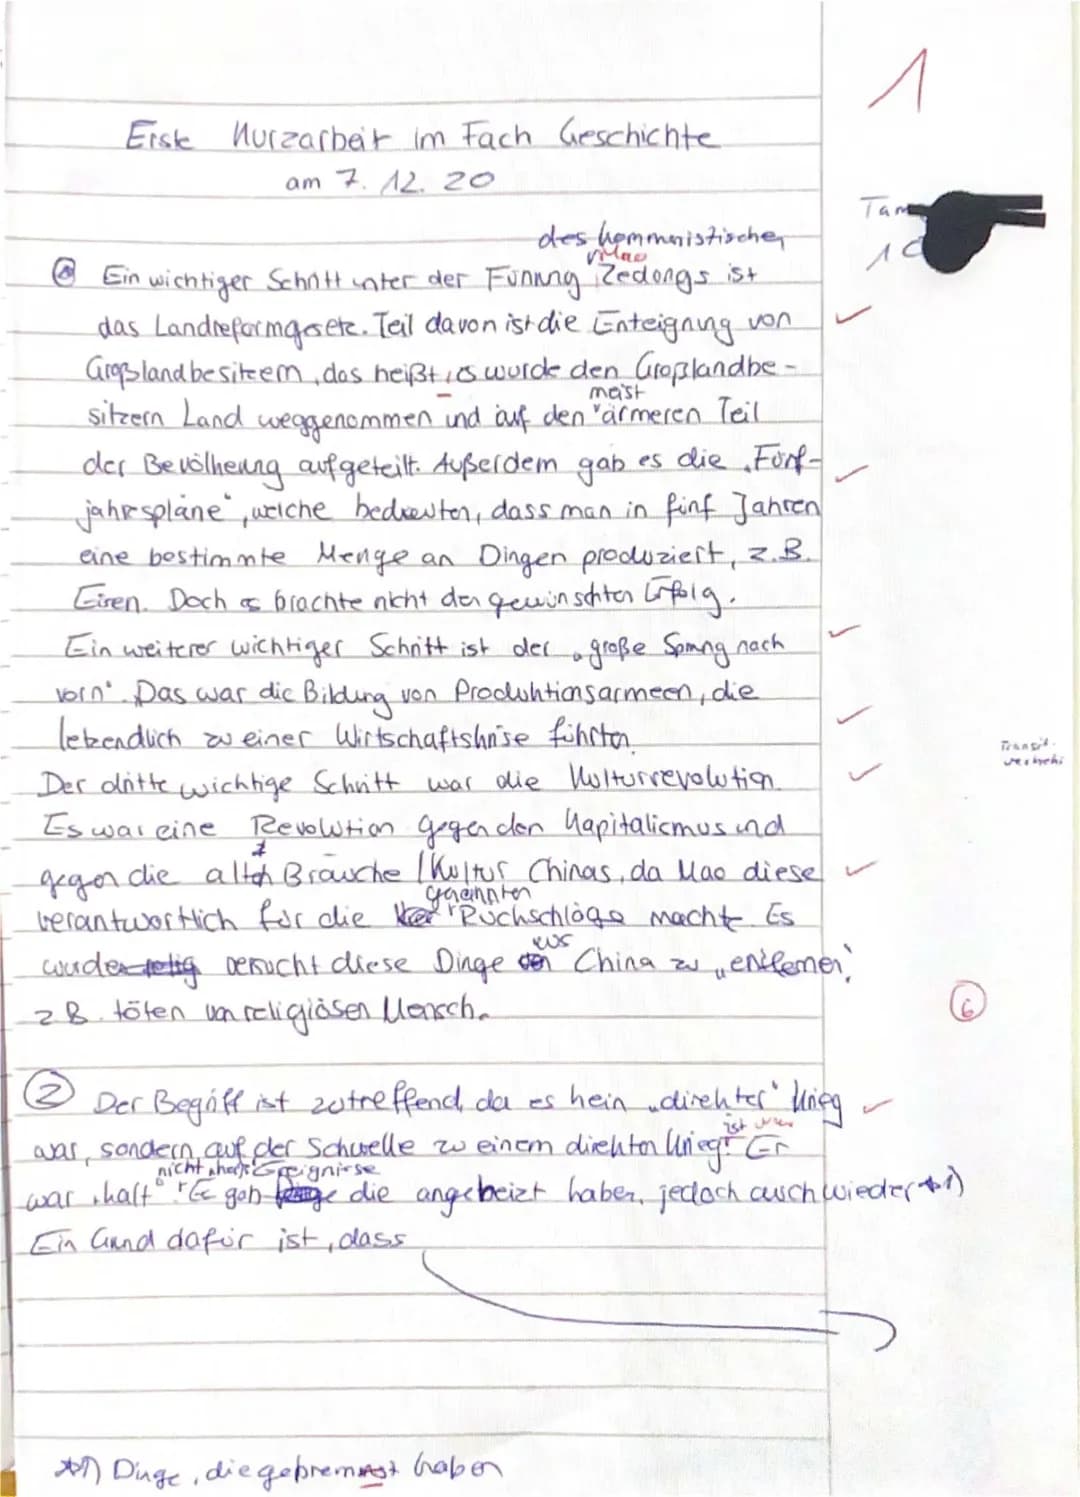 1
Erste Kurzarbeit im Fach Geschichte
am 7. 12. 20
Tam
1
des kommunistischen
Mao
Ein wichtiger Schritt unter der Führung Zedongs ist
das Landreformgesetz. Teil davon ist die Enteignung von
Großlandbesitzern, das heißt, es wurde den Großlandbe-
meist
sitzern Land weggenommen und auf den ärmeren Teil
der Bevölkerung aufgeteilt. Außerdem gab es die „Fünf-
jahrespläne", welche bedeuten, dass man in fünf Jahren
eine bestimmte Menge an Dingen produziert, z.B.
Eisen. Doch es brachte nicht den gewünschten Erfolg.
Ein weiterer wichtiger Schritt ist der „große Sprung nach
vorn". Das war die Bildung von Produktionsarmeen, die
letzendlich zu einer Wirtschaftskrise führten.
Transit.
Der dritte wichtige Schritt war die Kulturrevolution.
Es war eine Revolution gegen den Kapitalismus und
gegen die alten Bräuche / Kultur Chinas, da Mao diese
genannten
verantwortlich für die Rückschläge macht. Es
aus
wurde versucht diese Dinge China zu „entfernen",
z.B. töten von religiösen Mensch.
6
2 Der Begriff ist zutreffend, da es kein „direkter" Krieg
ist
war, sondern auf der Schwelle zu einem direkten Krieg. Er
nicht Ereignisse
war „kalt". Es gab die angeheizt haben, jedoch auch wieder *1)
Ein Grund dafür ist, dass
*1) Dinge, die gebremst haben